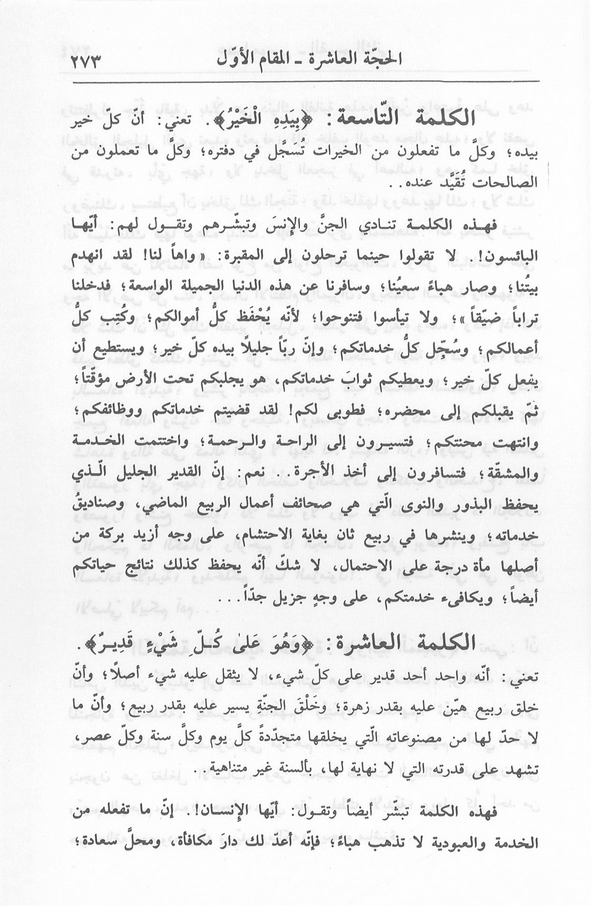 الحجّة العاشرة ـ المقام الأوّل ٢٧٣
الكلمة التّاسعة: ﴿بِيَدِهِ الْخَيْرُ﴾. تعني: أنّ كلّ خير
بيده؛ وكلَّ ما تفعلون من الخيرات تُسَجَّل في دفتره؛ وكلَّ ما تعملون من
الصالحات تُقَيَّد عنده..
فهذه الكلمة تنادي الجنَّ والإنسَ وتبشّرهم وتقول لهم: أيّها
البائسون!. لا تقولوا حينما ترحلون إلى المقبرة: «واهاً لنا! لقد انهدم
بيتُنا؛ وصار هباءً سعيُنا؛ وسافرنا عن هذه الدنيا الجميلة الواسعة؛ فدخلنا
تراباً ضيّقاً»؛ ولا تيأسوا فتنوحوا؛ لأنّه يُحْفَظ كلُّ أموالكم؛ وكُتِب كلُّ
أعمالكم؛ وسُجِّل كلُّ خدماتكم؛ وإنّ ربّاً جليلاً بيده كلّ خير؛ ويستطيع أن
يفعل كلّ خير؛ ويعطيكم ثوابَ خدماتكم، هو يجلبكم تحت الأرض مؤقّتاً؛
ثمّ يقبلكم إلى محضره؛ فطوبى لكم! لقد قضيتم خدماتكم ووظائفكم؛
وانتهت محنتكم؛ فتسيرون إلى الراحة والرحمة؛ واختتمت الخدمة
والمشقّة؛ فتسافرون إلى أخذ الأجرة... نعم: إنّ القدير الجليل الّذي
يحفظ البذور والنوى الّتي هي صحائف أعمال الربيع الماضي، وصناديقُ
خدماته؛ وينشرها في ربيع ثان بغاية الاحتشام، على وجه أزيد بركة من
أصلها مأة درجة على الاحتمال، لا شكّ أنّه يحفظ كذلك نتائج حياتكم
أيضاً؛ ويكافىء خدمتكم، على وجهٍ جزيل جدّاً...
الكلمة العاشرة: ﴿وَهُوَ عَلىٰ كُلِّ شَيْءٍ قَدِيرٌ﴾.
تعني: أنّه واحد أحد قدير على كلّ شيء، لا يثقل عليه شيء أصلاً؛ وأنّ
خلق ربيع هيّن عليه بقدر زهرة؛ وخَلْقَ الجنّةِ يسير عليه بقدر ربيع؛ وأنّ ما
لا حدّ لها من مصنوعاته الّتي يخلقها متجدّدةً كلَّ يوم وكلَّ سنة وكلّ عصر،
تشهد على قدرته التي لا نهاية لها، بألسنة غير متناهية..
فهذه الكلمة تبشّر أيضاً وتقول: أيّها الإنسان!. إنّ ما تفعله من
الخدمة والعبودية لا تذهب هباءً؛ فإنّه أعدّ لك دارَ مكافأة، ومحلَّ سعادة؛